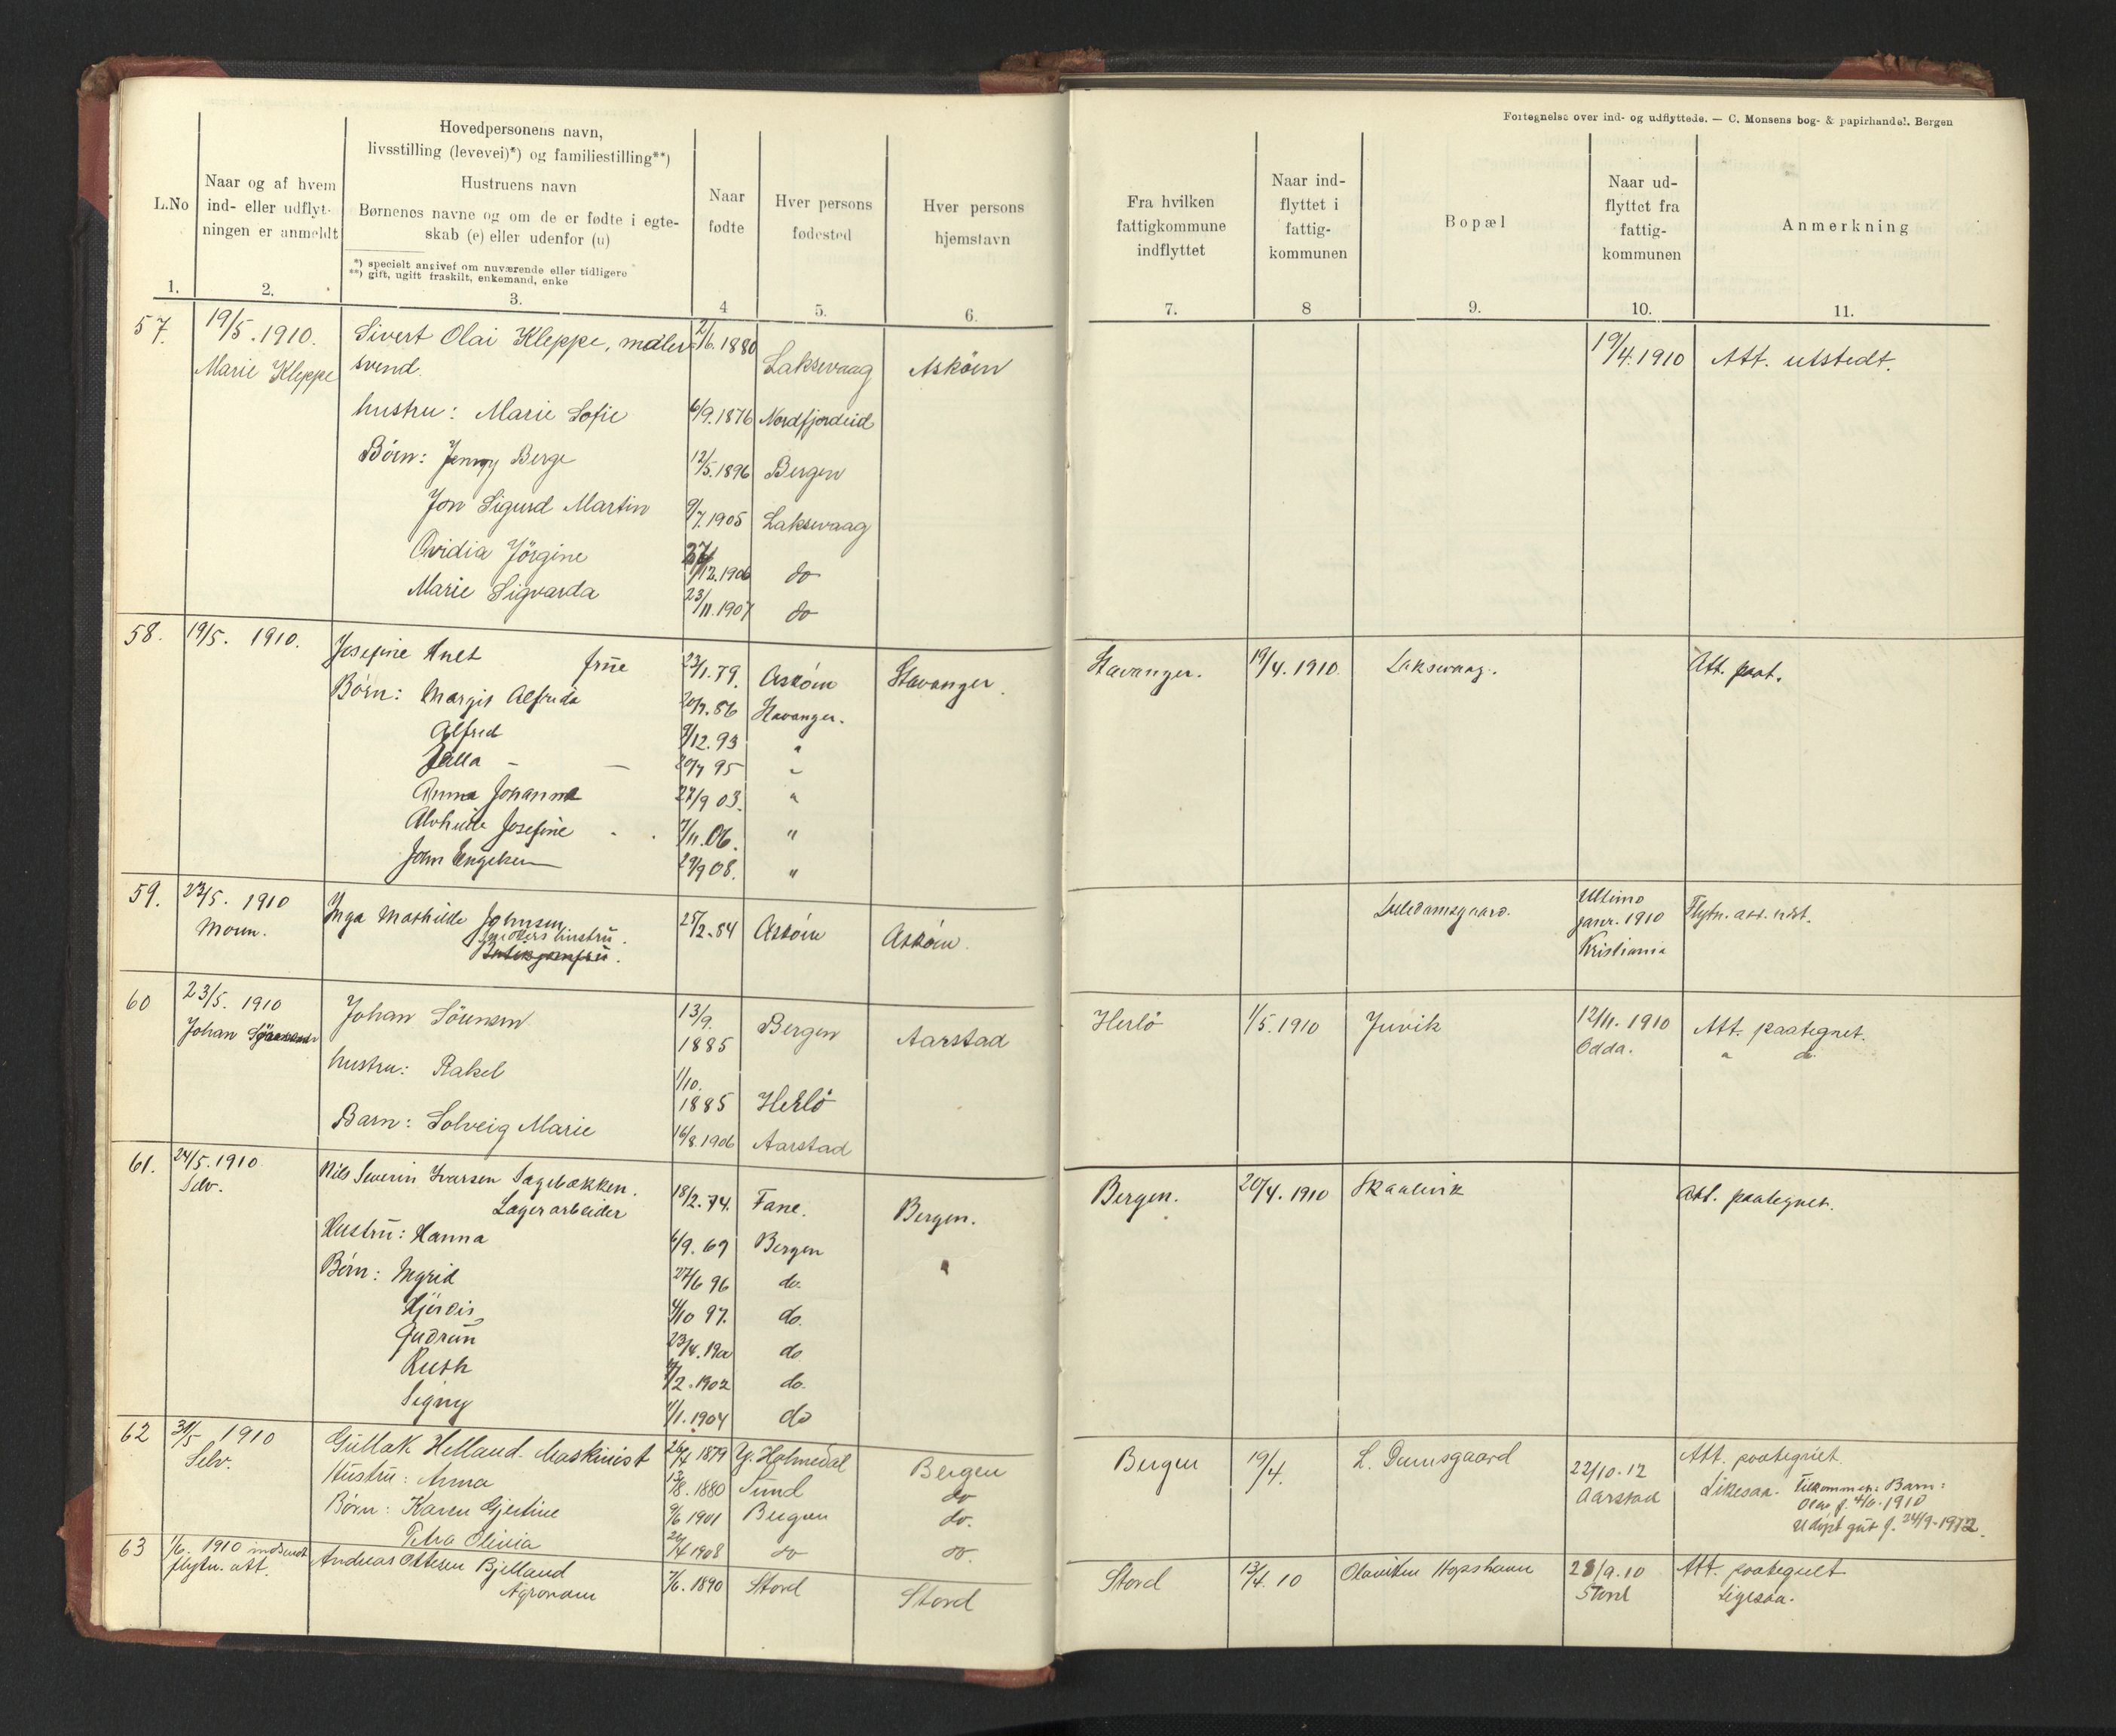 Fortegnelse over ind- og udflyttede. — C. Monsens bog- & papirhandel. Bergen
L.No
1.
Naar og af hvem
ind- eller udflyt-
ningen er anmeldt
2.
Hovedpersonens navn,
livsstilling (levevei)*) og familiestilling**)
Hustruens navn
Børnenes navne og om de er fødte i egte-
skab (e) eller udenfor (u)
*) specielt angivet om nuværende eller tidligere
**) gift, ugift fraskilt, enkemand, enke
3.
Naar
fødte
4
Hver persons
fødested
5.
Hver persons
hjemstavn
6.
Fra hvilken
fattigkommune
indflyttet
7.
Naar ind-
flyttet i
fattig-
kommunen
8
Bopæl
9.
Naar ud-
flyttet fra
fattig-
kommunen
10.
Anmerkning
11.
57. 19/5.1910. Sivert Olai Kleppe, maler 2/6.1880 19/4.1910 Att. utstedt.
Marie Kleppe svend. Laksevaag Askøen
hustru: Marie Sofie 6/9.1876 Nordfjordeid
Børn: Jenny Berge 12/5.1896 Bergen
Jon Sigurd Martin 9/7.1905 Laksevaag
Ovidia Jörgine /12.1906 do
Marie Sigvarda 23/11.1907 do
58. 19/5. 1910. Josefine frue 23/1.79. Askøen Stavanger. Stavanger. 19/4.1910 Laksevaag. Att. paat.
Børn: Margit Alfrida .86 Stavanger.
Alfred 9/12.93 "
Jalla - — 95 "
Anna Johanna 27/9 03. "
Alvhilde Josefine 7/11.06. "
John 29/9 08. "
59. 23/5. 1910 Inga Mathilde Johnsen 25/2.84 Askøen Askøen. Lilledamsgaard. Ultimo
Moren. hustru. janr. 1910 Flytn. att. udst.
Kristiania
60 23/5. 1910 Johan Sörensen 13/9. Bergen Aarstad Herlö 1/5.1910 Juvik 12/11.1910 Att. paategnet.
Johan 1885 Odda. " do
hustru: Rakel 1/10.
1885 Herlö
Barn: Solveig Marie 16/8.1906 Aarstad
61. 24/5.1910 Nils Severin Ivarsen Sagebakken. 18/2.74. Fane. Bergen. Bergen. 20/4.1910 Skaalevik Att. paategnet.
Selv. Lagerarbeider
Hustru: Hanna 6/9.69 Bergen "
Børn: Ingrid 27/6 96 do.
Hjørdis 4/10 97. do.
Gudrun 23/4. do
Ruth /2.1902 do.
Signy 1/1.1904 do
62 31/5 1910 Gullak Helland. Maskinist 26/4 1879 Y. Holmedal Bergen Bergen 19/4. L. Damsgaard 22/10.12 Att. paategnet.
Selv. Hustru: Anna 13/8.1880 Sund do Aarstad Likesaa. Tilkommen: Barn:
Børn: Karen Gjertine 9/6 1901 Bergen do. f. 4/6.1910
Petra Olivia 24/4 1908 do do. Udøpt gut f. 24/9-1912.
63 1/6. 1910 indsendt Andreas Ottesen Bjelland 7/6.1890 Stord Stord Stord 13/4.10 Hopshavn 28/9.10 Att. paategnet
flytn. att. Agronom Stord Ligesaa.